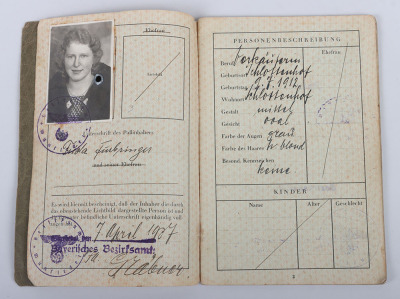 Ehefrau
Unterschrift des Paßinhabers
und seiner Ehefrau
Es wird hiermit bescheinigt, daß der Inhaber die durch
das obenstehende Lichtbild dargestellte Person ist und
die darunter befindliche Unterschrift eigenhändig voll-
7. April 1937
Bayerisches Bezirksamt
PERSONENBESCHREIBUNG
Ehefrau
Beruf Verkäuferin
Geburtsort Schlottenhof
Geburtstag 9.7.1912
Wohnort Schlottenhof
Gestalt mittel
Gesicht oval
Farbe der Augen grau
Farbe des Haares h. blond
Besond. Kennzeichen keine
KINDER
Name Alter Geschlecht